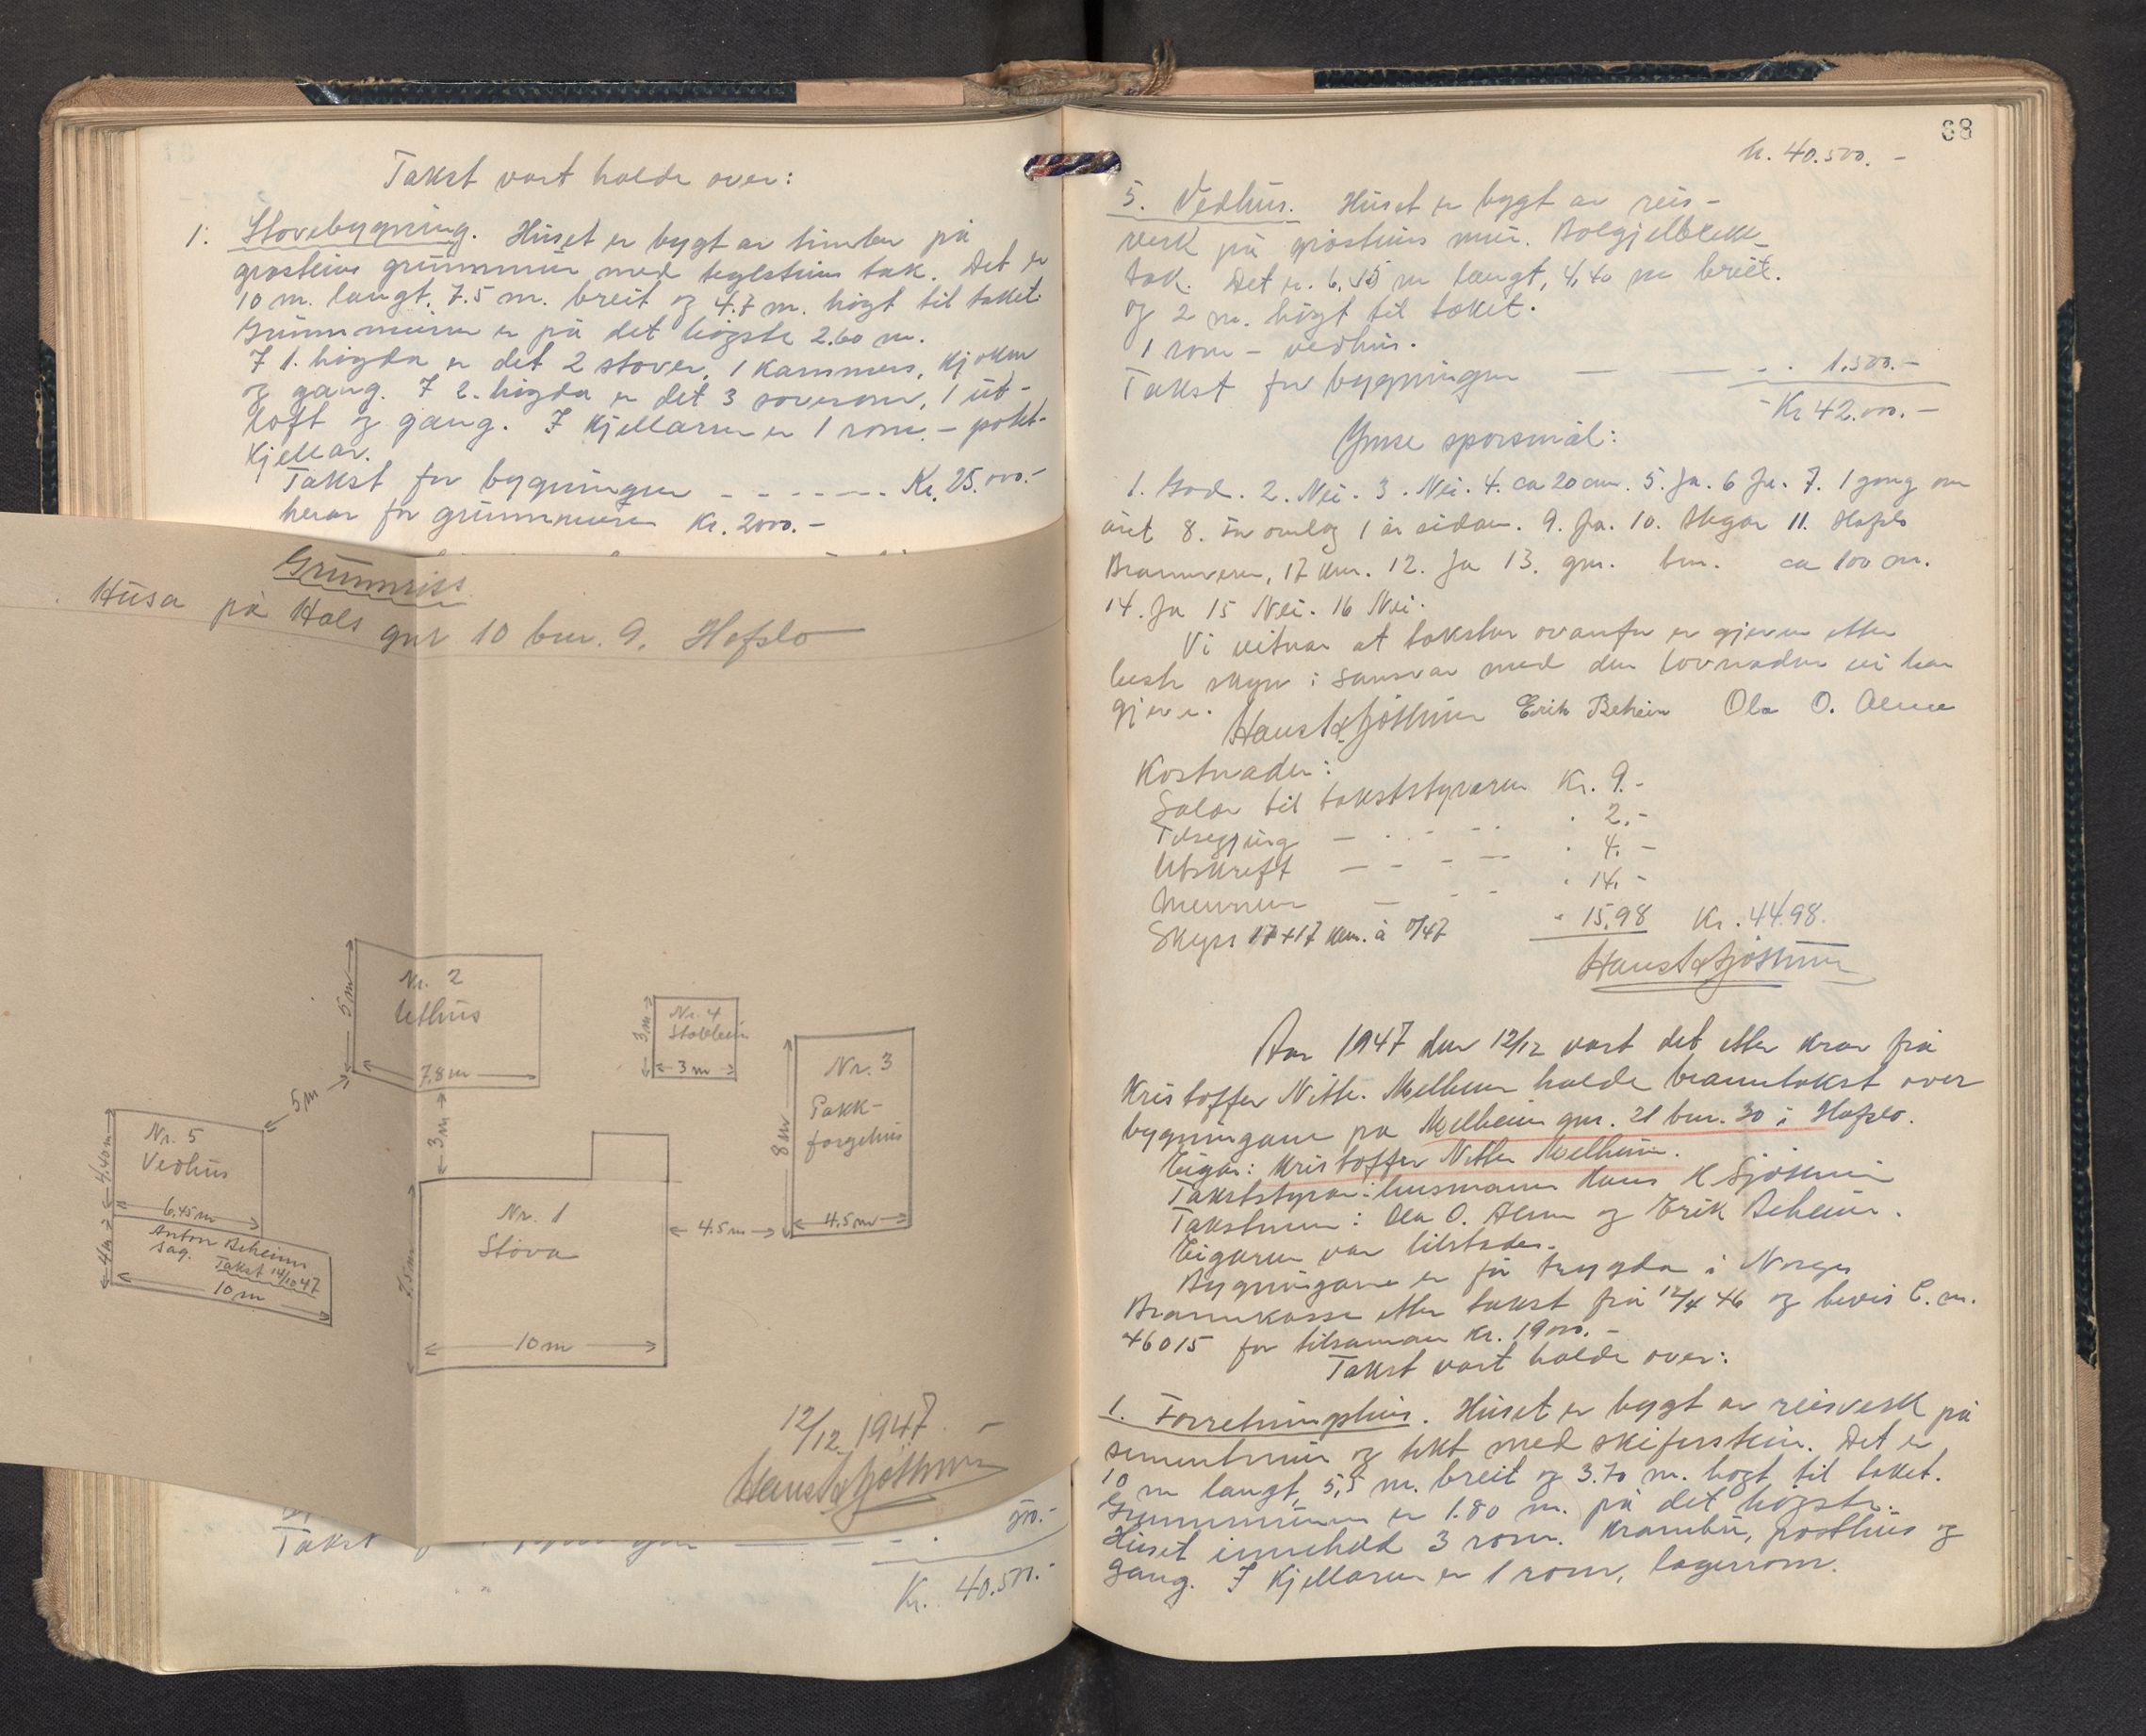 Takst vart halde over:
1. Stovebygning. Huset er bygt av timber på
gråsteins grunnmur med teglsteins tak. Det er
10 m. langt, 7.5 m. breit og 4.7 m. högt til taket.
Grunnmuren er på det högste 2.60 m.
I 1. högda er det 2 stover, 1 kammers, kjöken
og gang. I 2. högda er det 3 soverom, 1 ut-
loft og gang. I kjellaren er 1 rom - potet-
kjellar.
Takst for bygningen - - - - - - - Kr. 25.000.-
herav for grunnmuren Kr. 2000.-
Grunnriss
Husa på Hals gnr 10 bnr. 9. Hafslo
Nr. 2
Uthus
5 m
7.8 m
Nr. 4
Stabbur
3 m
3 m
Nr. 3
Pakk-
forgehus
8 m
4.5 m
5 m
3 m
Nr. 5
Vedhus
4,40 m
6,45 m
Anton Beheim
sag.
Takst 14/10 47
4 m
10 m
Nr. 1
Stova
7.5 m
10 m
4.5 m
12/12 1947.
Hans K Sjöthun
500.-
Takst
Kr. 40.500.-
68
Kr. 40.500.-
5. Vedhus. Huset er bygt av reis-
verk på gråsteins mur. Bølgjeblekk-
tak. Det er 6,45 m langt, 4,40 m breit.
og 2 m. högt til taket.
1 rom - vedhus.
Takst for bygningen — — - . 1.500.-
Kr 42.000.-
Ymse spörsmål:
1. God. 2. Nei. 3. Nei. 4. ca 20 cm. 5. Ja. 6 Ja. 7. 1 gong om
året 8. For omlag 1 år sidan. 9. Ja. 10. 11. Hafslo
Brannvern, 17 km. 12. Ja 13. gnr. bnr. ca 100 m.
14. Ja 15 Nei. 16 Nei.
Vi vitnar at takstar ovanfor er gjeven etter
beste skyn i samsvar med den lovnaden vi har
gjeve. Hans K Sjöthun Erik Beheim Ola O. Alme
Kostnader:
Salær til takststyraren Kr. 9.-
Tilsegjing — . - - - . 2.-
Utskrift — - - - — . 4.-
Mennene — - - . 14.-
Skyss 17+17 km. à 0/47 " 15,98 Kr. 44.98.
Hans K Sjöthun
Aar 1947 den 12/12 vart det etter krav frå
Kristoffer Nitter Melheim halde branntakst over
bygningane på Melheim gnr. 21 bnr. 30 i Hafslo.
Eigar: Kristoffer Nitter Melheim.
Takststyrar: lensmann Hans K. Sjöthun
Takstmenn: Ola O. Alme og Erik Beheim.
Eigaren var tilstades.
Bygningane er för trygda i Norges
Brannkasse etter takst frå 12/4 46 og bevis C. nr.
46015 for tilsaman Kr. 19000.-
Takst vart halde over:
1. Forretningshus. Huset er bygt av reisverk på
sementmur og tekt med skiferstein. Det er
10 m langt, 5,5 m. breit og 3.70 m. högt til taket.
Grunnmuren er 1.80 m. på det högste.
Huset inneheld 3 rom. Krambu, posthus og
gang. I kjellaren er 1 rom, lagerrom.